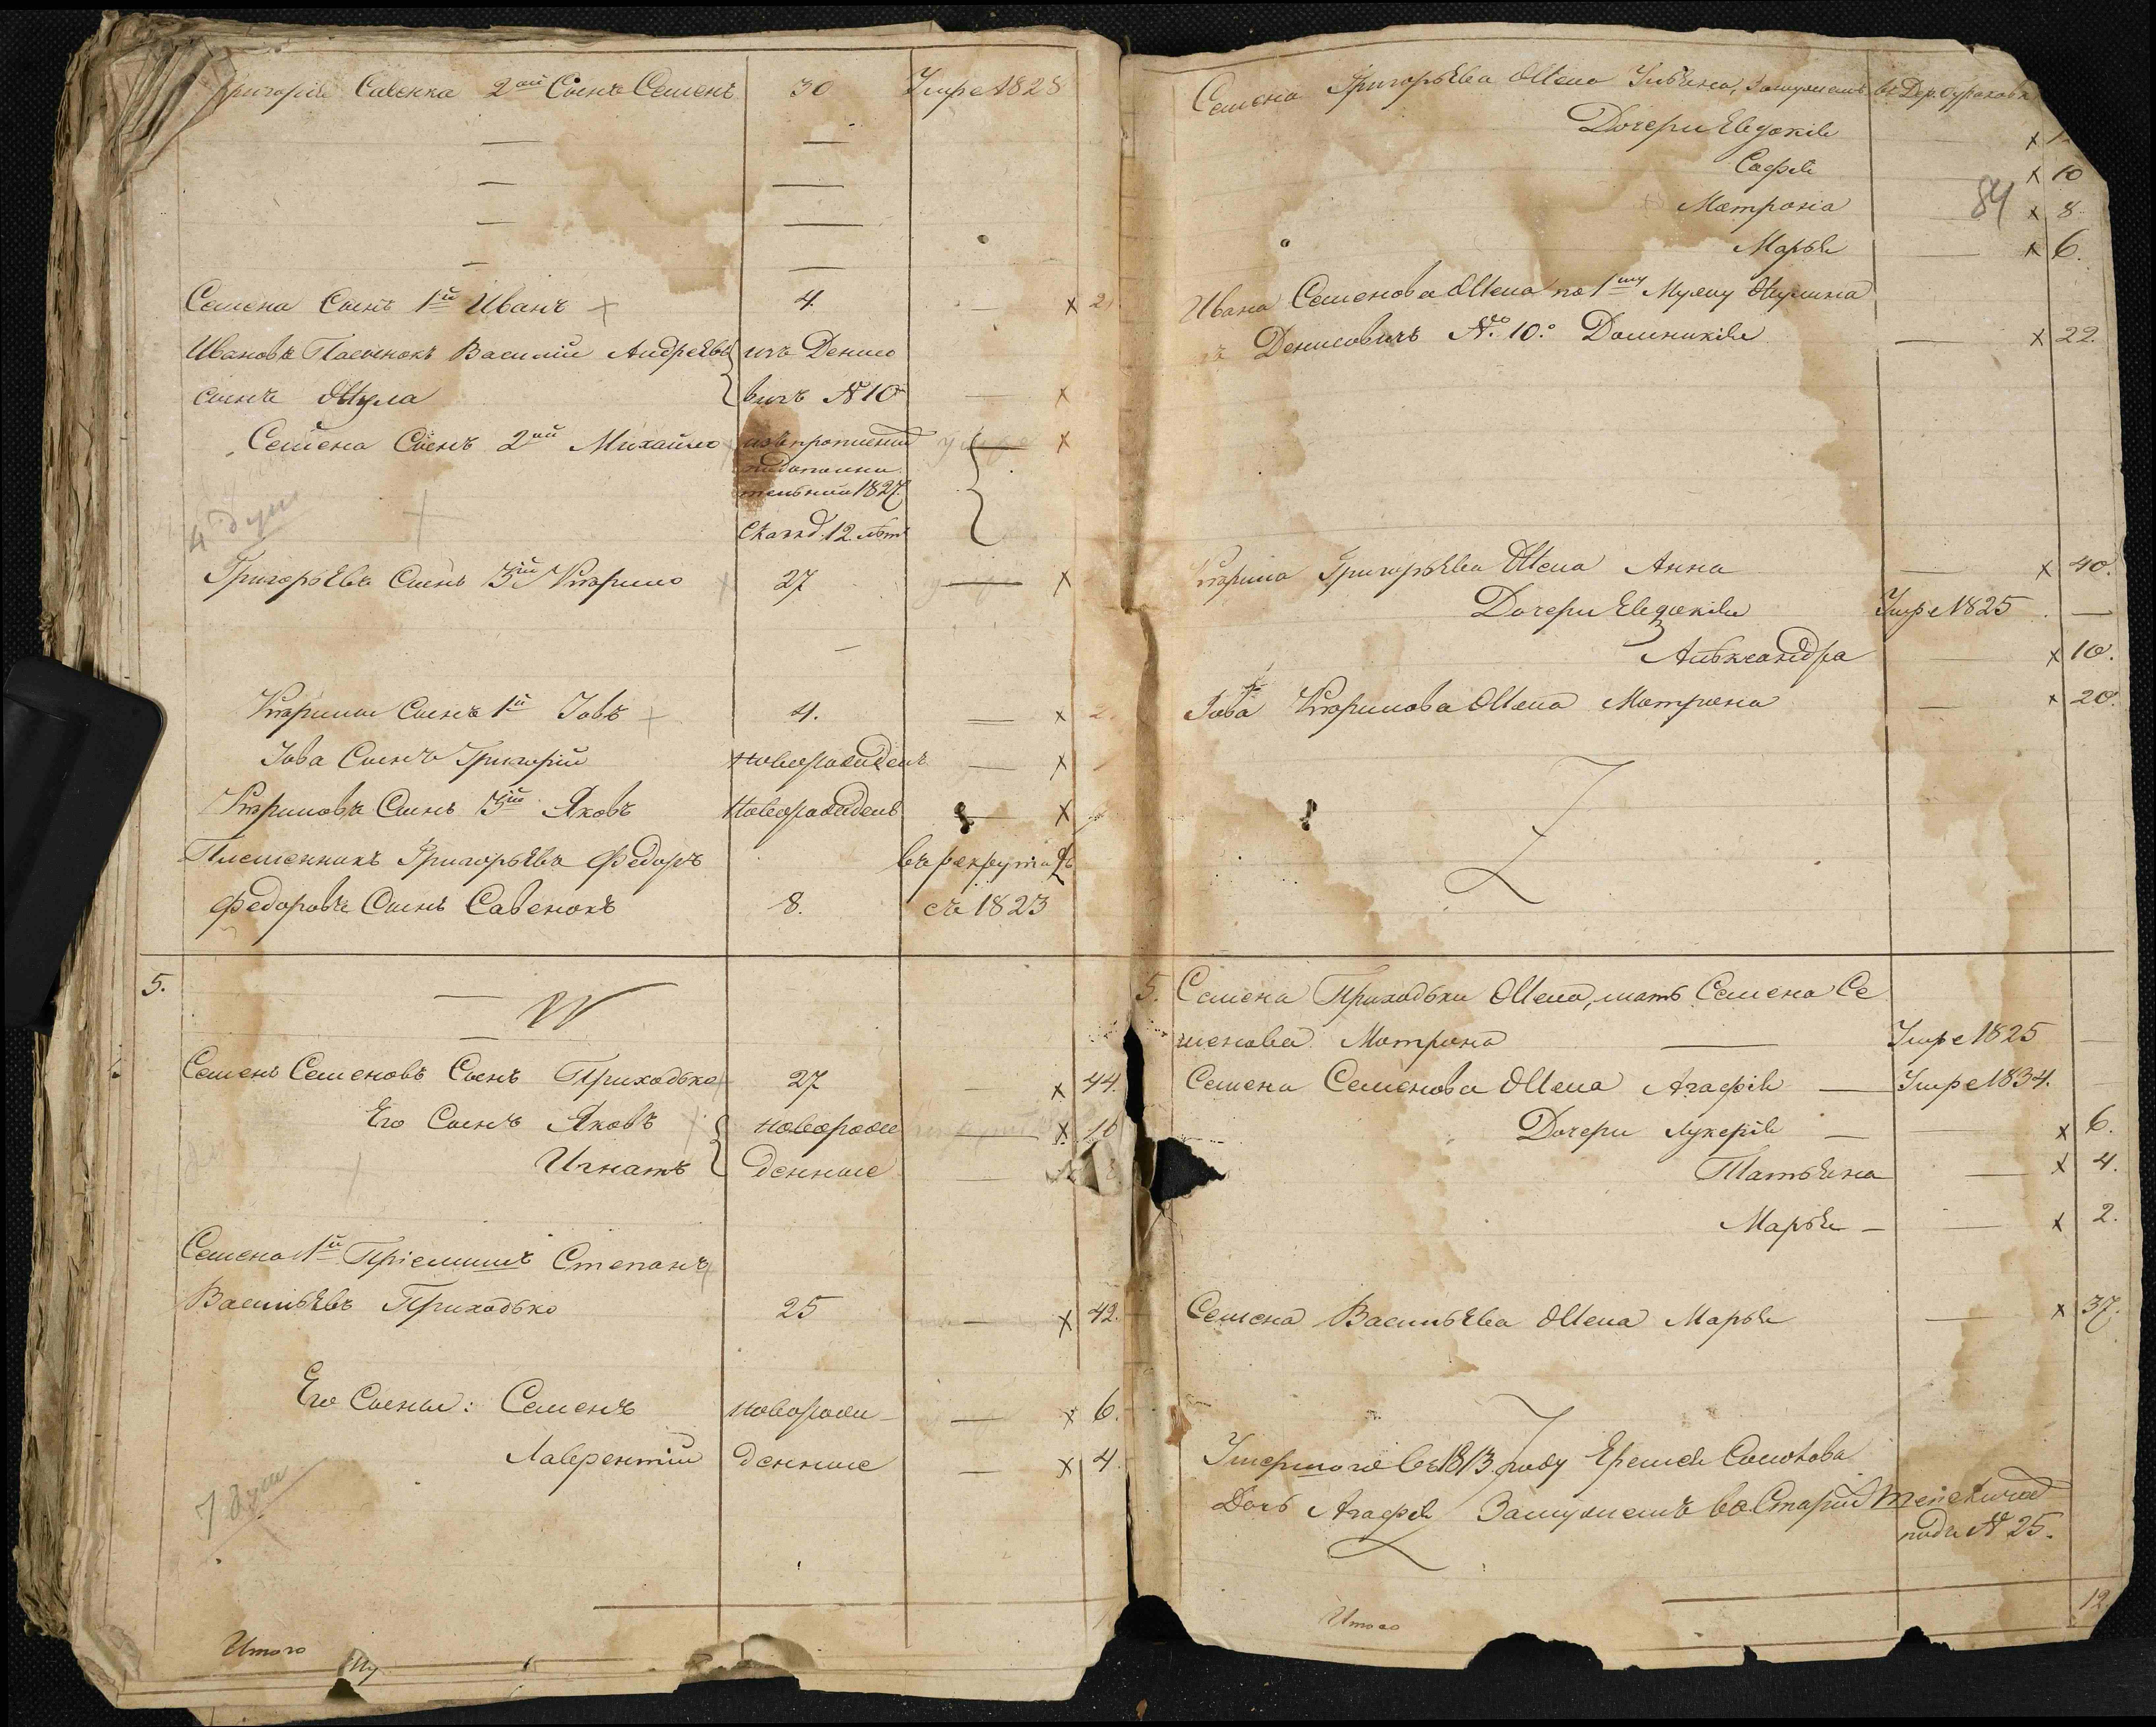 Григорія Савенка 2ой Сынъ Семенъ 30 Умре 1828
Семена Сынъ 1й Иванъ 4. — х 2
Ивановъ Пасынокъ Василій Андреѣвъ изъ Денисо
сынъ Жула вичъ №10 — х
Семена Сынъ 2ой Михайло
тельный 1827.
сказкѣ. 12 лѣтъ
4 души
Григорьѣвъ Сынъ 3й Кирило 27 — х
Кирилы Сынъ 1й Іовъ 4. — х
Іова Сынъ Григорій новорожденъ — х
Кириловъ Сынъ 3й Яковъ новорожденъ — х
Племенникъ Григорьѣвъ Федоръ въ рекрутахъ
Федоровъ Сынъ Савенокъ 8. съ 1823
5.
Семенъ Семеновъ Сынъ Приходько 27 — х 44.
Его Сынъ Яковъ новорож — х 16
Игнатъ денные —
Семена 1й Пріемышъ Степанъ
Васильѣвъ Приходько 25 — х 42.
Его Сыны: Семенъ новорож — х 6.
Лаврентій денные — х 4.
7 душ
Итого
Семена Григорьѣва Жена Ульяна, Замужемъ въ Дер.
Дочери Евдокія х
Софія х 10
84
Матрона х 8.
Марья х 6.
Ивана Семенова Жена по 1му Мужу Акулина
Денисовичъ №10. Домникія — х 22.
Кирила Григорьѣва Жена Анна — х 40.
Дочери Евдокія Умре 1825 —
Александра х 10.
Іова Кирилова Жена Матрона — х 20.
5. Семена Приходьки Жена, мать Семена Се
менова Матрона — Умре 1825 —
Семена Семенова Жена Агафія — Умре 1834.
Дочери Лукерія — х 6.
Татьяна — х 4.
Марья — х 2.
Семена Васильѣва Жена Марья — х 37.
Умершого въ 1813 году Еремея
Дочь Агафія Замужемъ въ
подъ №25.
12
Итого